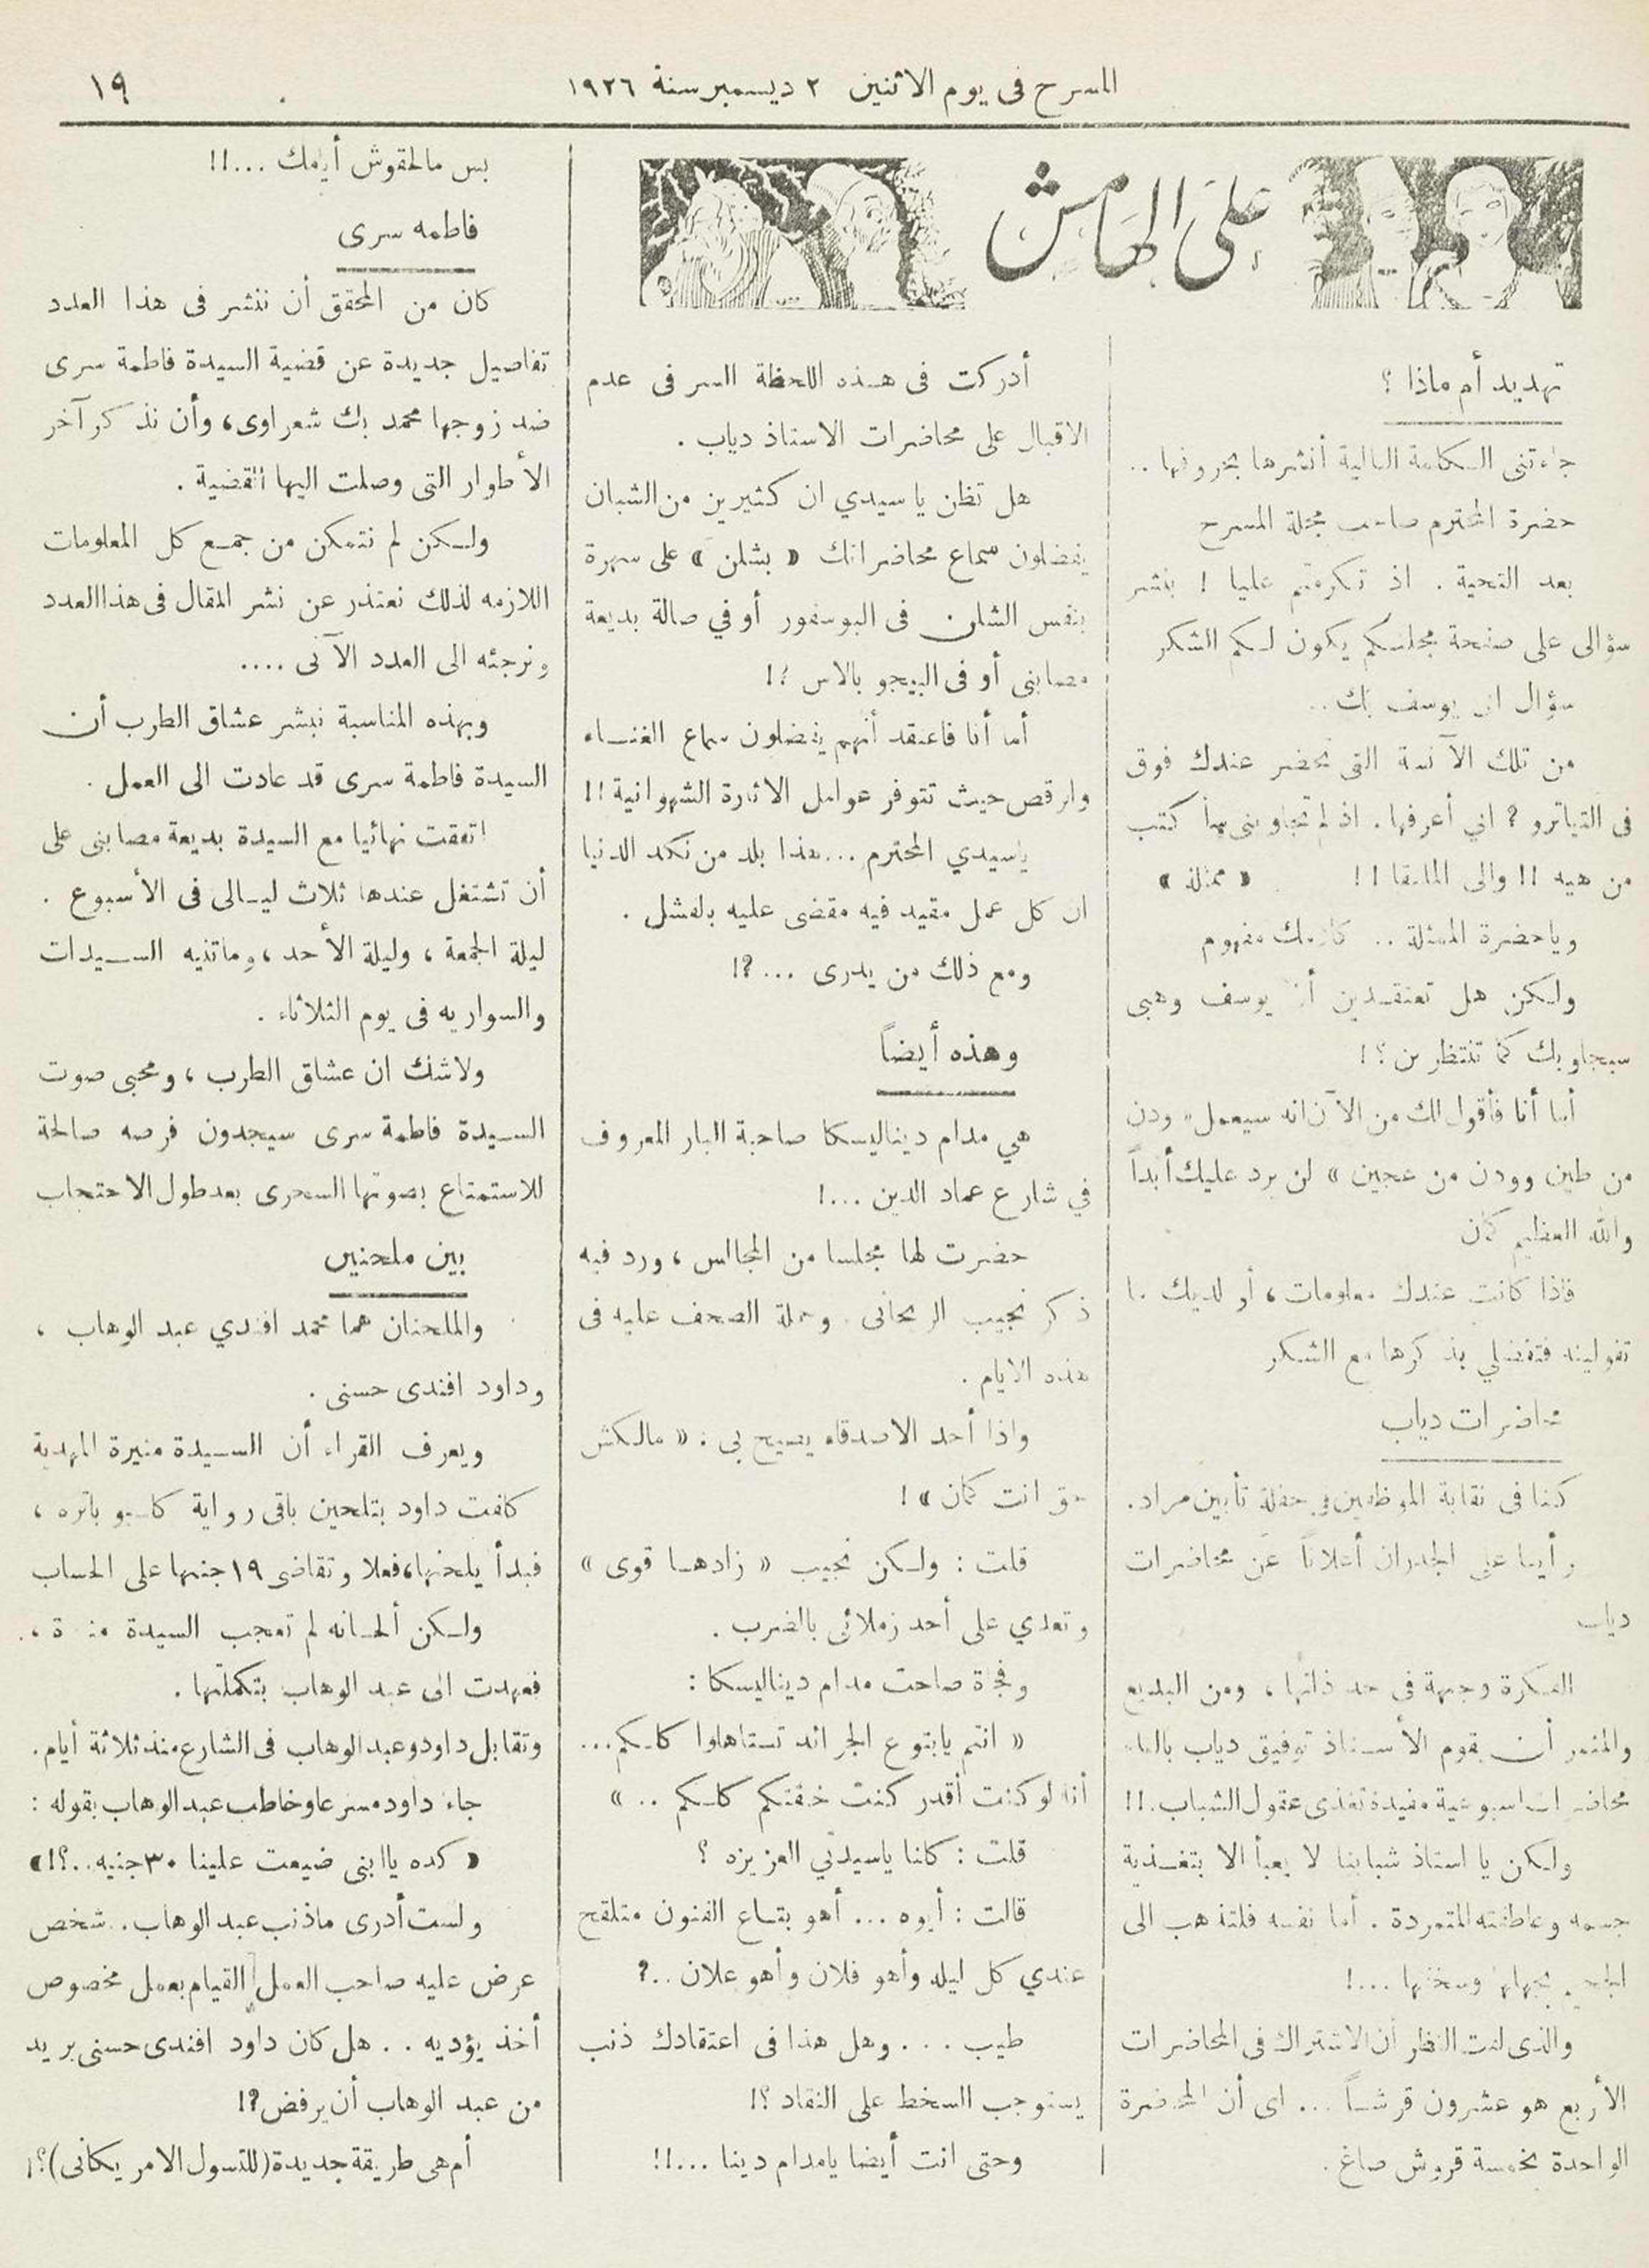 المسرح فى يوم الاثنين ٢ ديسمبر سنة ١٩٢٦
١٩
على الهامش
تهديد أم ماذا ؟
جاءتنى الكلمة التالية أنشرها بحروفها ..
حضرة المحترم صاحب مجلة المسرح
بعد التحية . اذ تكرمتم عليا ! بنشر
سؤالى على صفحة مجلتكم يكون لكم الشكر
سؤال الى يوسف بك ..
من تلك الآنسة التى تحضر عندك فوق
فى التياترو ? انى أعرفها . اذ لم تجاوبنى سأكتب
من هيه !! والى الملتقا !! « ممثلة »
وياحضرة الممثلة .. كلامك مفهوم
ولكن هل تعتقدين أن يوسف وهبى
سيجاوبك كما تنتظرين ؟ !
أما أنا فأقول لك من الآن انه سيعمل « ودن
من طين وودن من عجين » لن يرد عليك أبداً
والله العظيم كمان
فاذا كانت عندك معلومات ، أو لديك ما
تقولينه فتفضلي بذكرها مع الشكر
محاضرات دياب
كنا فى نقابة الموظفين فى حفلة تأبين مراد .
رأينا على الجدران أعلاناً عن محاضرات
دياب
الفكرة وجيهة فى حد ذاتها ، ومن البديع
والمثمر أن يقوم الأستاذ توفيق دياب بالقاء
محاضرات اسبوعية مفيدة تغذى عقول الشباب .!!
ولكن يا استاذ شبابنا لا يعبأ الا بتغذية
جسمه وعاطفته المتمردة . أما نفسه فلتذهب الى
الجحيم بجهلها وسخفها ...!
والذى لفت النظر أن الاشتراك فى المحاضرات
الأربع هو عشرون قرشاً ... اى أن المحاضرة
الواحدة بخمسة قروش صاغ .
أدركت فى هذه اللحظة السر فى عدم
الاقبال على محاضرات الاستاذ دياب .
هل تظن يا سيدي ان كثيرين من الشبان
يفضلون سماع محاضراتك « بشلن » على سهرة
بنفس الشلن فى البوسفور أو في صالة بديعة
مصابنى أو فى البيجو بالاس ؟!
أما أنا فاعتقد أنهم يفضلون سماع الغناء
والرقص حيث تتوفر عوامل الاثارة الشهوانية !!
ياسيدي المحترم ... هذا بلد من نكد الدنيا
ان كل عمل مفيد فيه مقضى عليه بالفشل .
ومع ذلك من يدرى ...?!
وهذه أيضاً
هي مدام ديناليسكا صاحبة البار المعروف
في شارع عماد الدين ...!
حضرت لها مجلسا من المجالس ، ورد فيه
ذكر نجيب الريحانى . وحملة الصحف عليه فى
هذه الايام .
واذا أحد الاصدقاء يصيح بى : « مالكش
حق انت كمان » !
قلت : ولكن نجيب « زادهـا قوى »
وتعدي على أحد زملائى بالضرب .
وفجأة صاحت مدام ديناليسكا :
« انتم يابتوع الجرائد تستاهلوا كلكم ...
أنا لو كنت أقدر كنت خنقتكم كلكم .. »
قلت : كلنا ياسيدتي العزيزه ؟
قالت : أيوه ... أهو بتاع الفنون متلقح
عندي كل ليله وأهو فلان وأهو علان ..?
طيب ... وهل هذا فى اعتقادك ذنب
يستوجب السخط على النقاد ؟!
وحتى انت أيضا يامدام دينا ...!!
بس مالحقوش أيامك ...!!
فاطمه سرى
كان من المحقق أن ننشر فى هذا العدد
تفاصيل جديدة عن قضية السيدة فاطمة سرى
ضد زوجها محمد بك شعراوى ، وأن نذكر آخر
الأطوار التى وصلت اليها القضية .
ولكن لم نتمكن من جمع كل المعلومات
اللازمه لذلك نعتذر عن نشر المقال فى هذا العدد
ونرجئه الى العدد الآتى ....
وبهذه المناسبة نبشر عشاق الطرب أن
السيدة فاطمة سرى قد عادت الى العمل .
اتفقت نهائيا مع السيدة بديعة مصابنى على
أن تشتغل عندها ثلاث ليالى فى الأسبوع .
ليلة الجمعة ، وليلة الأحد ، وماتنيه السيدات
والسواريه فى يوم الثلاثاء .
ولاشك ان عشاق الطرب ، ومحبى صوت
السيدة فاطمة سرى سيجدون فرصه صالحة
للاستمتاع بصوتها السحرى بعد طول الاحتجاب
بين ملحنين
والملحنان هما محمد افندي عبد الوهاب ،
وداود افندى حسنى .
ويعرف القراء أن السيدة منيرة المهدية
كلفت داود بتلحين باقى رواية كليوباتره ،
فبدأ يلحنها ، فعلا وتقاضى ١٩ جنيها على الحساب
ولكن ألحانه لم تعجب السيدة منيرة ،.
فعهدت الى عبد الوهاب بتكملتها .
وتقابل داود وعبد الوهاب فى الشارع منذ ثلاثة أيام .
جاء داود مسرعا وخاطب عبد الوهاب بقوله :
« كده يا ابنى ضيعت علينا ٣٠ جنيه ..؟! »
ولست أدرى ماذنب عبد الوهاب .. شخص
عرض عليه صاحب العمل القيام بعمل مخصوص
أخذ يؤديه .. هل كان داود افندى حسنى يريد
من عبد الوهاب أن يرفض ?!
أم هى طريقة جديدة ( للتسول الامريكانى ) ؟!